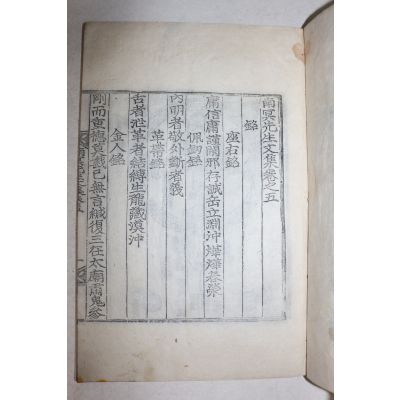 南冥先生文集卷之五
銘
座右銘
庸信庸謹閑邪存誠岳立淵沖燁燁春榮
佩劒銘
內明者敬外斷者義
革帶銘
舌者泄革者結縛生龍藏漠沖
金人銘
剛而重德莫戡己無言緘復三在太廟肅鬼參